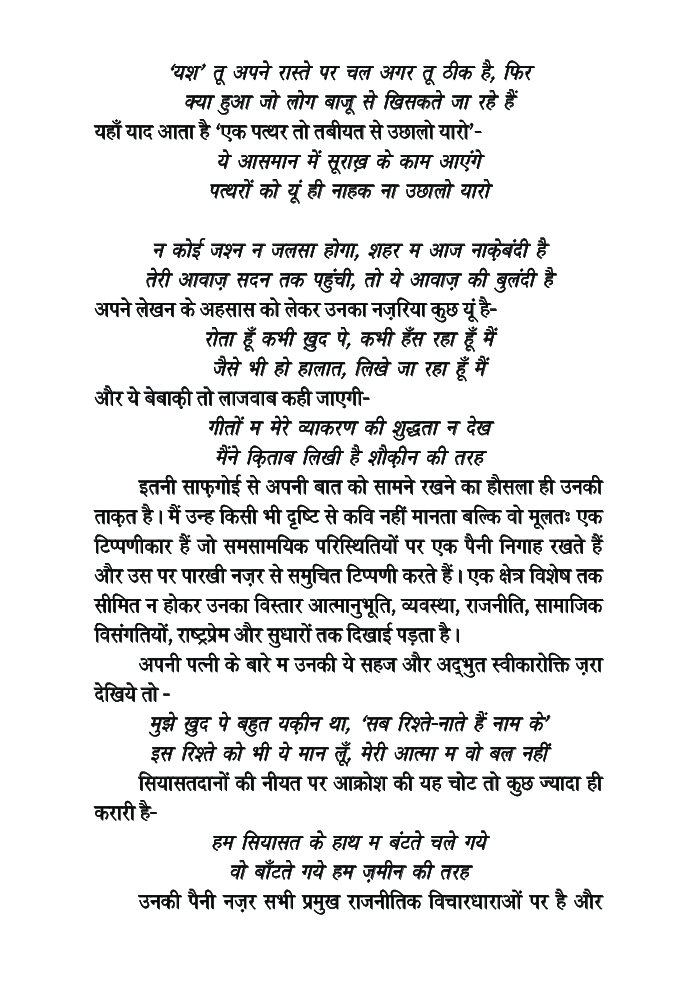 ‘यश’ तू अपने रास्ते पर चल अगर तू ठीक है, फिर
क्या हुआ जो लोग बाजू से खिसकते जा रहे हैं
यहाँ याद आता है ‘एक पत्थर तो तबीयत से उछालो यारो’-
ये आसमान में सूराख़ के काम आएंगे
पत्थरों को यूं ही नाहक ना उछालो यारो
न कोई जश्न न जलसा होगा, शहर म आज नाक़ेबंदी है
तेरी आवाज़ सदन तक पहुंची, तो ये आवाज़ की बुलंदी है
अपने लेखन के अहसास को लेकर उनका नज़रिया कुछ यूं है-
रोता हूँ कभी ख़ुद पे, कभी हँस रहा हूँ मैं
जैसे भी हो हालात, लिखे जा रहा हूँ मैं
और ये बेबाक़ी तो लाजवाब कही जाएगी-
गीतों म मेरे व्याकरण की शुद्धता न देख
मैंने क़िताब लिखी है शौक़ीन की तरह
इतनी साफ़गोई से अपनी बात को सामने रखने का हौसला ही उनकी
ताक़त है। मैं उन्ह किसी भी दृष्टि से कवि नहीं मानता बल्कि वो मूलतः एक
टिप्पणीकार हैं जो समसामयिक परिस्थितियों पर एक पैनी निगाह रखते हैं
और उस पर पारखी नज़र से समुचित टिप्पणी करते हैं। एक क्षेत्र विशेष तक
सीमित न होकर उनका विस्तार आत्मानुभूति, व्यवस्था, राजनीति, सामाजिक
विसंगतियों, राष्ट्रप्रेम और सुधारों तक दिखाई पड़ता है।
अपनी पत्नी के बारे म उनकी ये सहज और अद्‌भुत स्वीकारोक्ति ज़रा
देखिये तो -
मुझे ख़ुद पे बहुत यक़ीन था, ‘सब रिश्ते-नाते हैं नाम के’
इस रिश्ते को भी ये मान लूँ, मेरी आत्मा म वो बल नहीं
सियासतदानों की नीयत पर आक्रोश की यह चोट तो कुछ ज्यादा ही
करारी है-
हम सियासत के हाथ म बंटते चले गये
वो बाँटते गये हम ज़मीन की तरह
उनकी पैनी नज़र सभी प्रमुख राजनीतिक विचारधाराओं पर है और